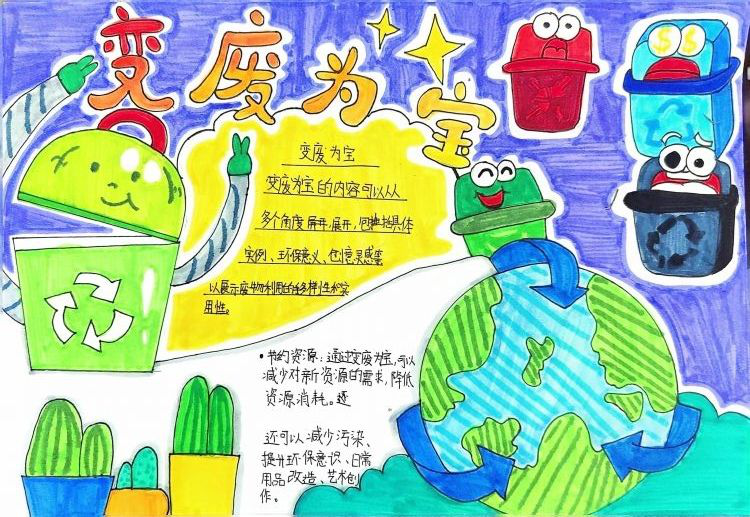 变废为宝
变废为宝
变废为宝的内容可以从
多个角度展开,包括具体
实例、环保意义、创意灵感等
以展示废物利用的多样性和实
用性。
• 节约资源:通过变废为宝,可以
减少对新资源的需求,降低
资源消耗。还
还可以减少污染、
提升环保意识、日常
用品改造、艺术创
作。
$ $